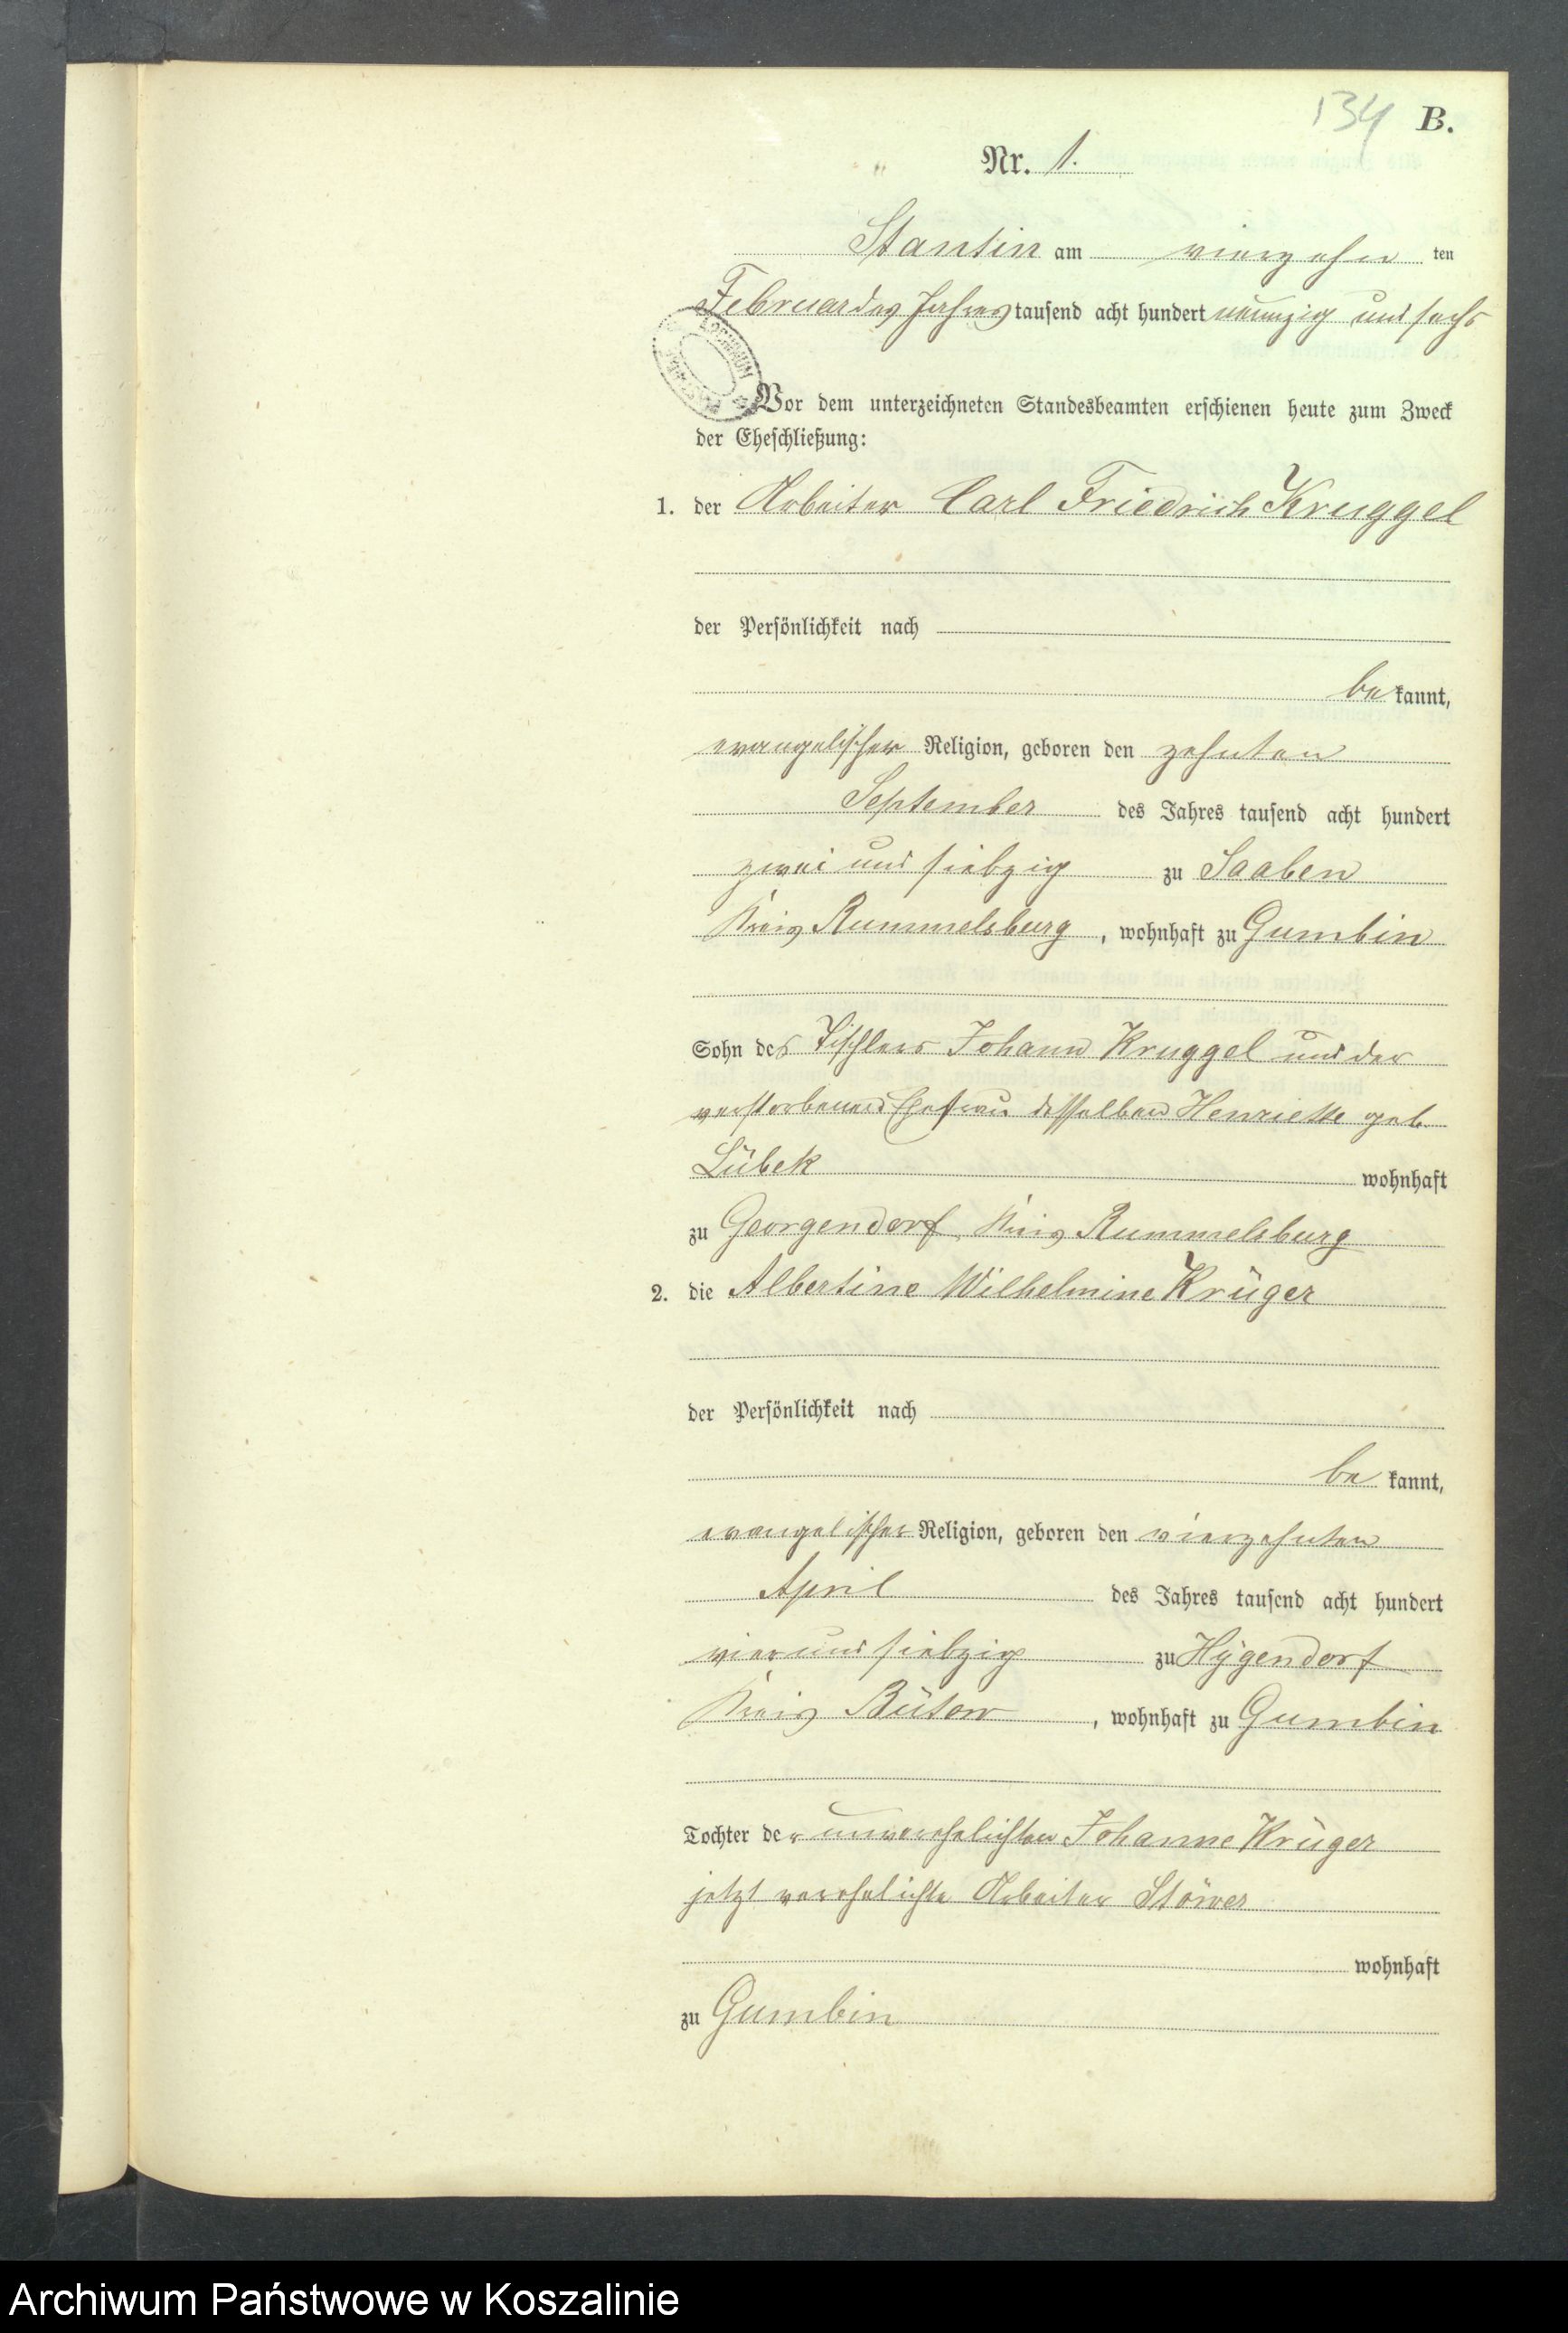 134 B.
Nr. 1.
Stantin am vierzehn ten
Februar des Jahres tausend acht hundert neunzig und sechs
Vor dem unterzeichneten Standesbeamten erschienen heute zum Zweck
der Eheschließung:
1. der Arbeiter Carl Friedrich Kruggel
der Persönlichkeit nach
be kannt,
evangelischer Religion, geboren den zehnten
September des Jahres tausend acht hundert
zwei und siebzig zu Saaben
Kreis Rummelsburg, wohnhaft zu Gumbin
Sohn des Tischlers Johann Kruggel und der
verstorbenen Ehefrau desselben Henriette geb
Lübek wohnhaft
zu Georgendorf, Kreis Rummelsburg
2. die Albertine Wilhelmine Krüger
der Persönlichkeit nach
be kannt,
evangelischer Religion, geboren den vierzehnten
April des Jahres tausend acht hundert
vier und siebzig zu Hÿgendorf
Kreis Bütow, wohnhaft zu Gumbin
Tochter der unverehelichten Johanne Krüger
jetzt verehelichte Arbeiter Stöwer
wohnhaft
zu Gumbin
Archiwum Państwowe w Koszalinie